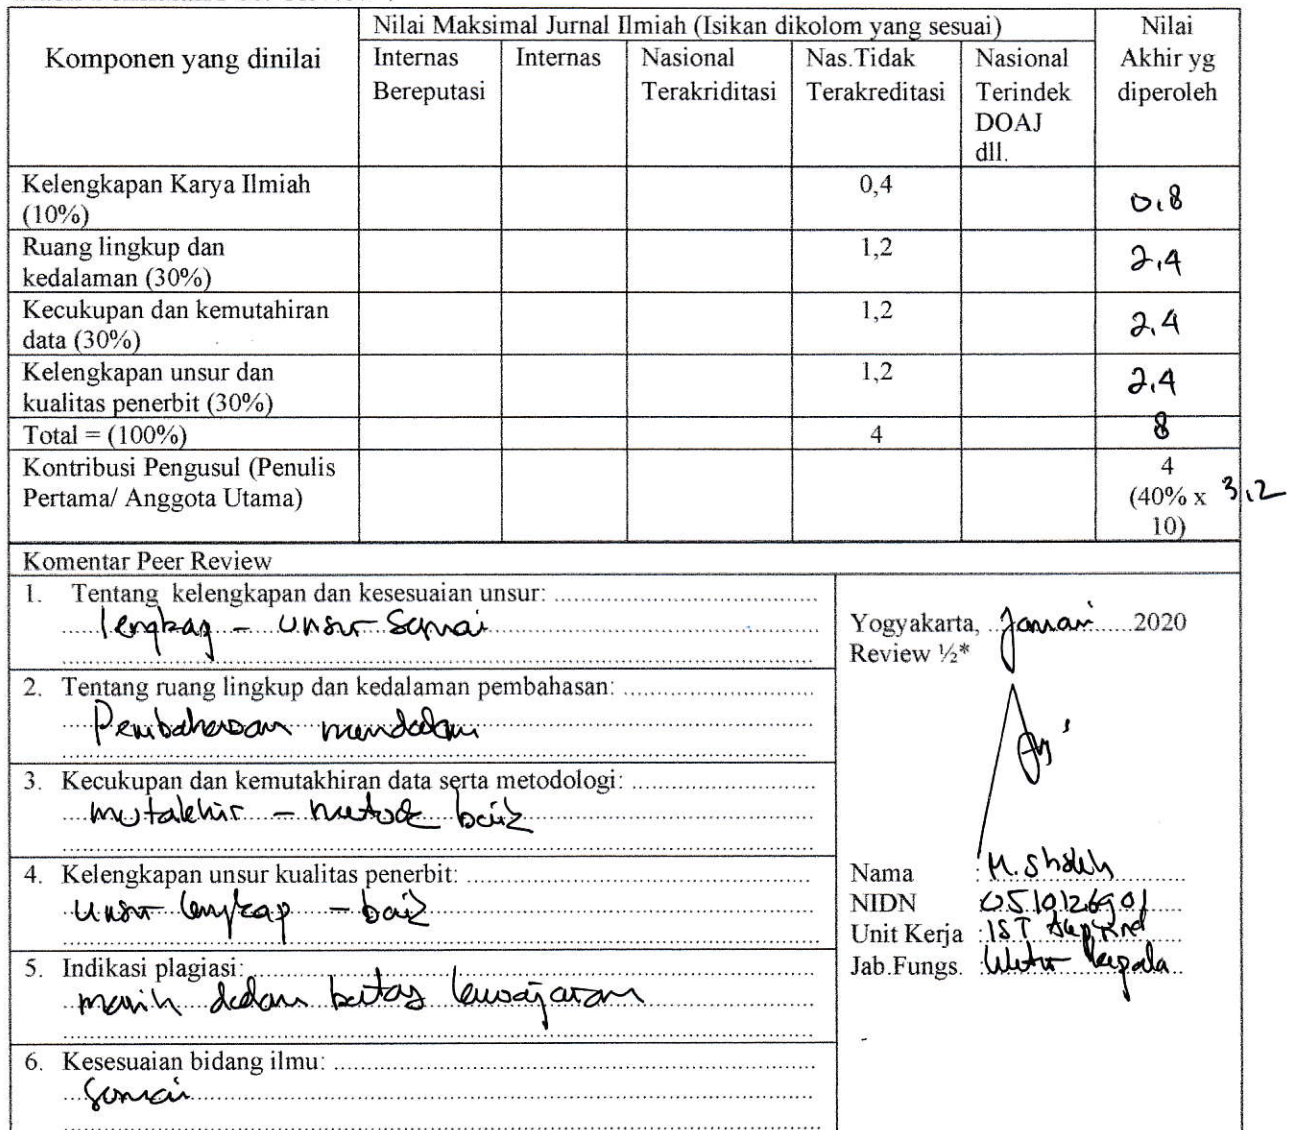 Nilai Maksimal Jurnal Ilmiah (Isikan dikolom yang sesuai)
Komponen yang dinilai
Internas Bereputasi
Internas
Nasional Terakriditasi
Nas.Tidak Terakreditasi
Nasional Terindek DOAJ dll.
Nilai Akhir yg diperoleh
Kelengkapan Karya Ilmiah 0,4 0,8
(10%)
Ruang lingkup dan 1,2 2,4
kedalaman (30%)
Kecukupan dan kemutahiran 1,2 2,4
data (30%)
Kelengkapan unsur dan 1,2 2,4
kualitas penerbit (30%)
Total = (100%) 4 8
Kontribusi Pengusul (Penulis 4
Pertama/ Anggota Utama) (40% x 3,2
10)
Komentar Peer Review
1. Tentang kelengkapan dan kesesuaian unsur:
lengkap - unsur sesuai
2. Tentang ruang lingkup dan kedalaman pembahasan:
Pembahasan mendalam
3. Kecukupan dan kemutakhiran data serta metodologi:
mutakhir - metode baik
4. Kelengkapan unsur kualitas penerbit:
unsur lengkap - baik
5. Indikasi plagiasi:
masih dalam batas kewajaran
6. Kesesuaian bidang ilmu:
Sesuai
Yogyakarta, Januari 2020
Review ½*
Nama : M. Sholeh
NIDN 0510126901
Unit Kerja : IST Akprind
Jab.Fungs. : Lektor Kepala